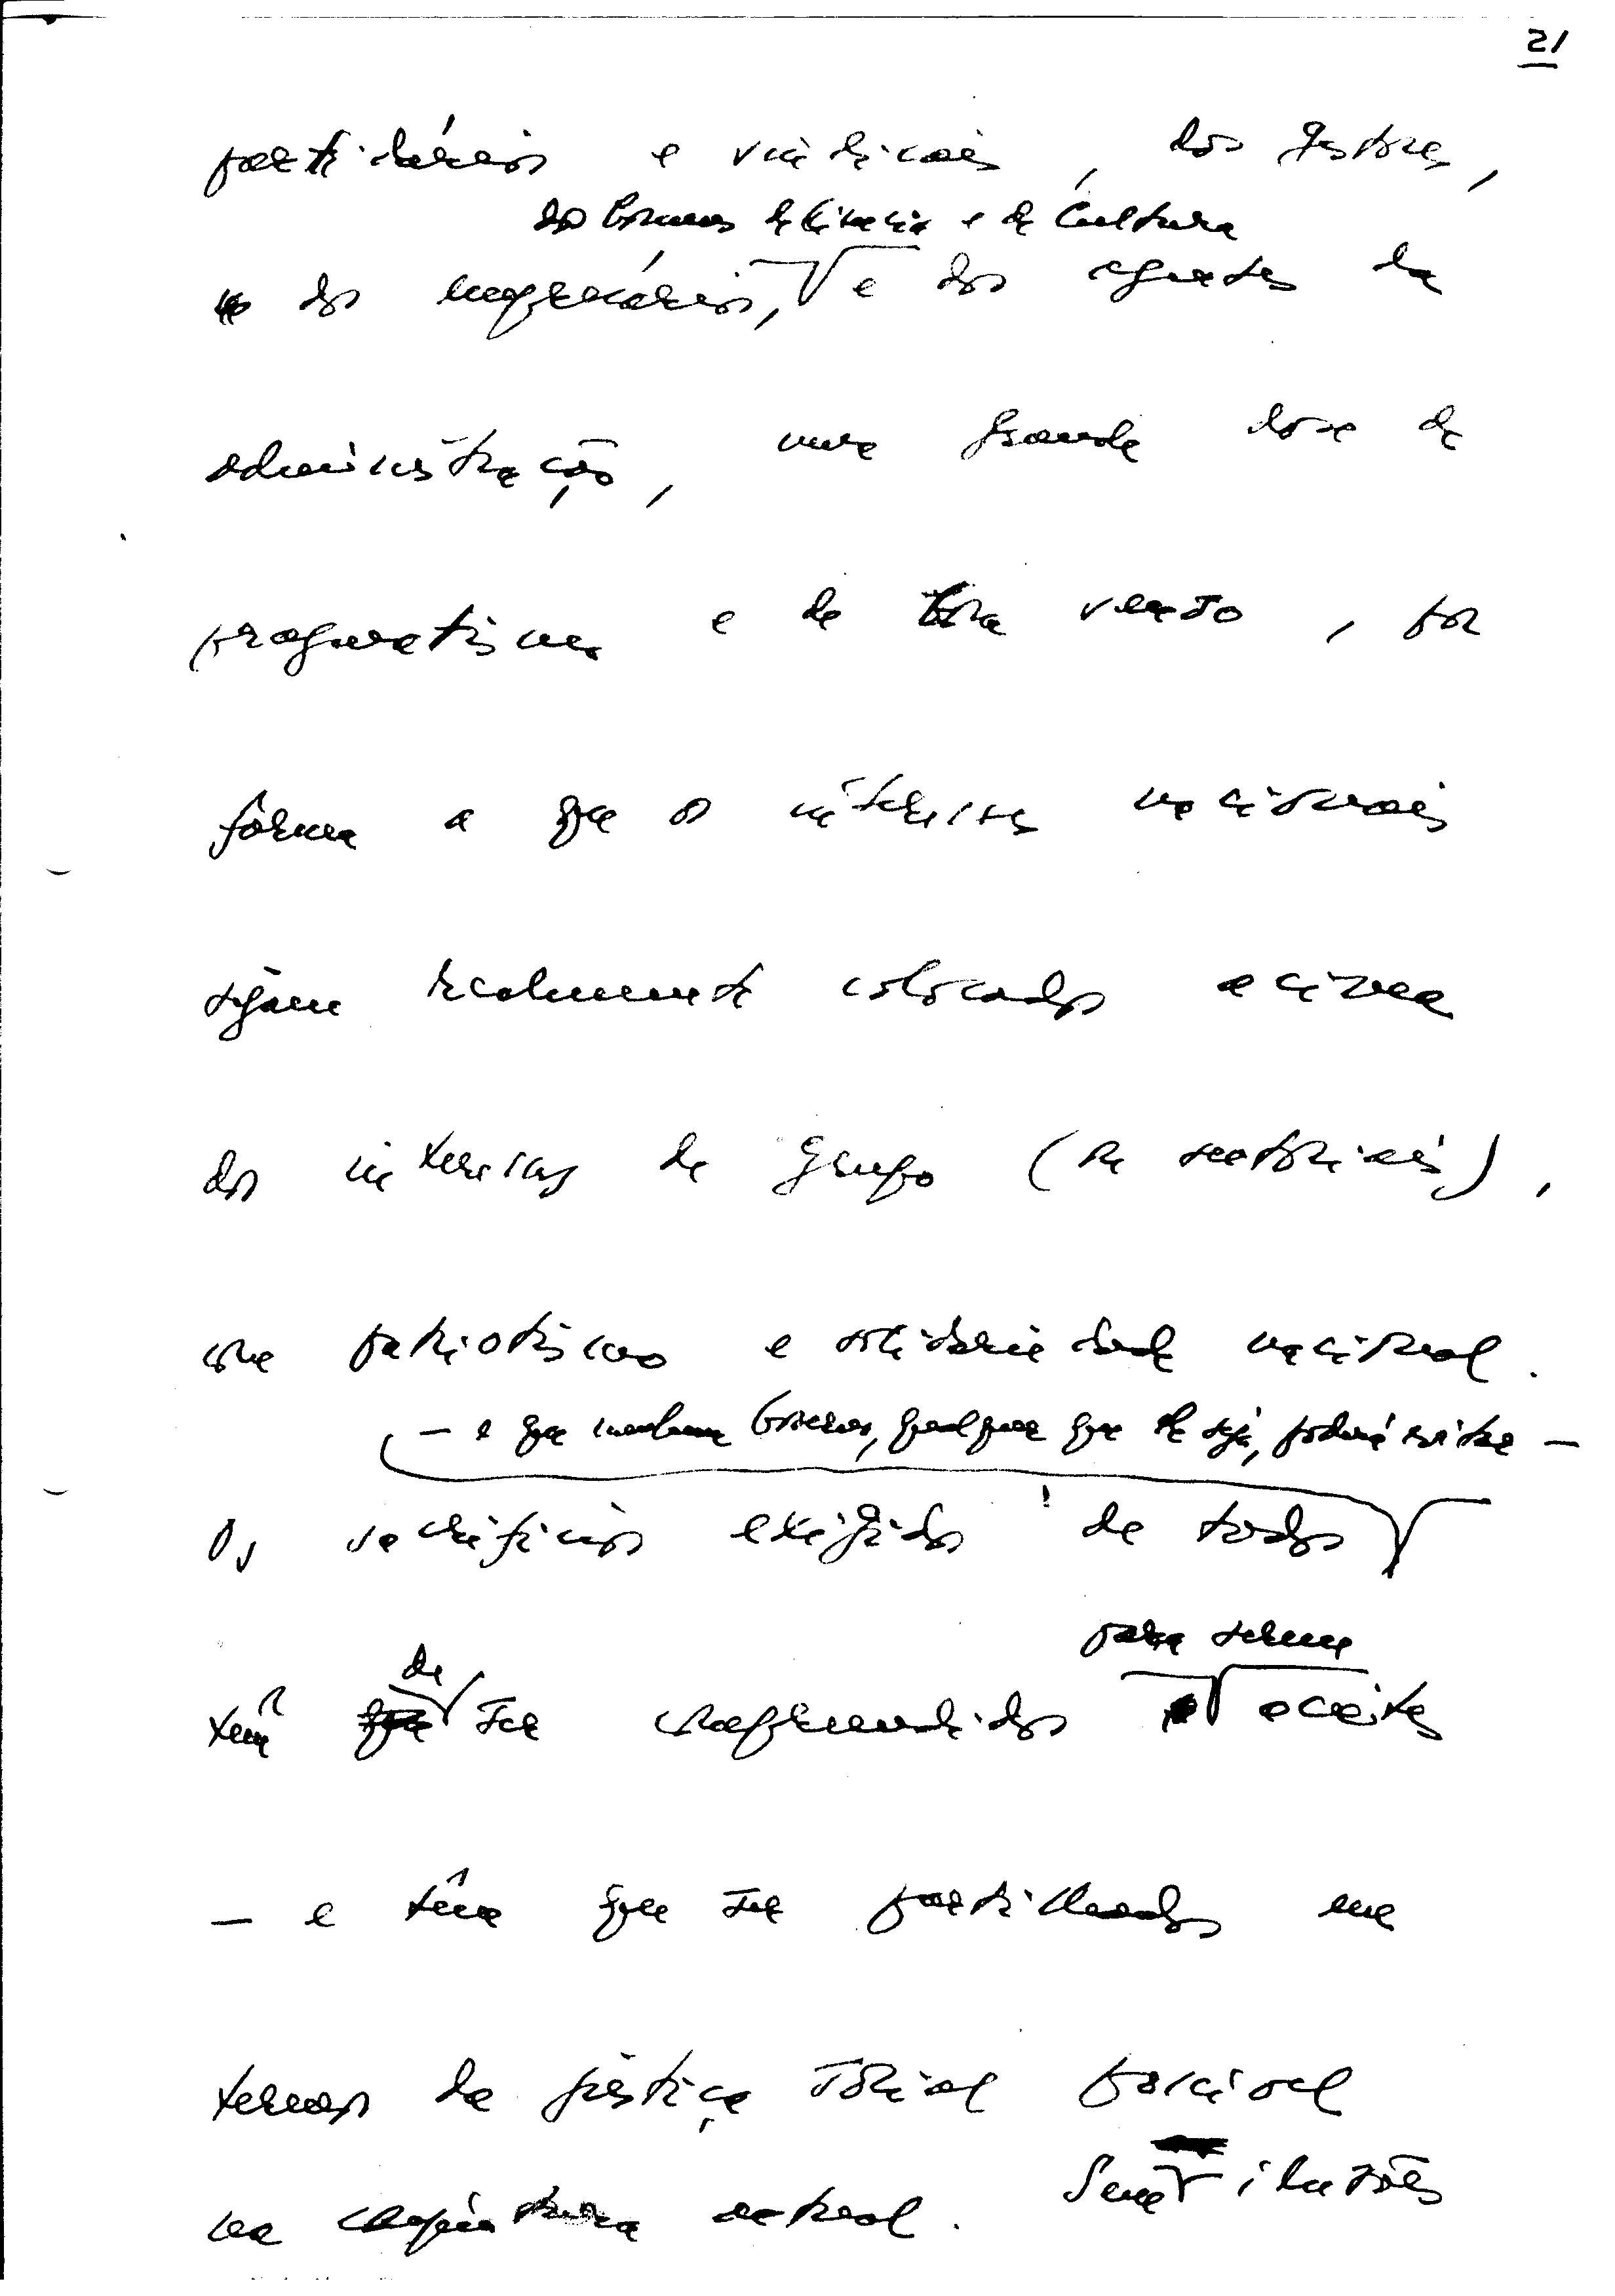 21
partidários e sindicais, dos gestores,
dos homens de ciência e de cultura
dos empresários, e dos agentes da
administração, uma grande dose de
pragmatismo e de bom senso, por
forma a que os interesses nacionais
sejam realmente colocados acima
dos interesses de grupo (ou sectoriais),
com patriotismo e solidariedade nacional.
— e que nenhum Governo, qualquer que ele seja, poderá evitar —
Os sacrifícios exigidos de todos
para serem
de
têm ser compreendidos aceites
— e têm que ser partilhados em
termos de justiça social possível
na conjuntura actual. Sem ilusões